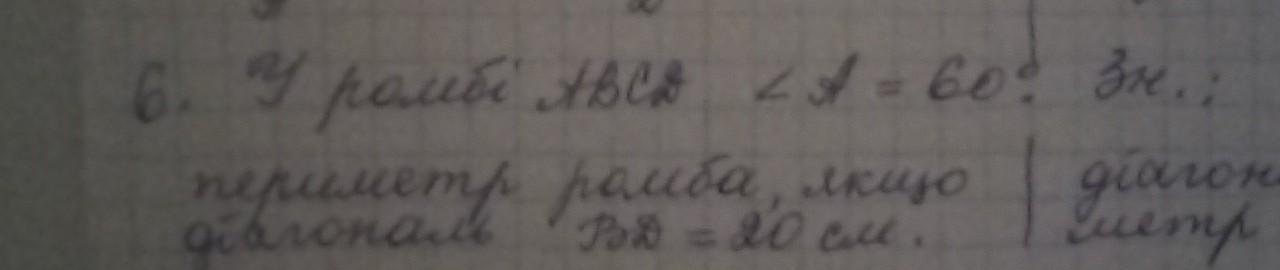 6. У ромбі ABCD ∠A = 60°. Зн.:
периметр ромба, якщо | діагон
діагональ BD = 20 см. | метр